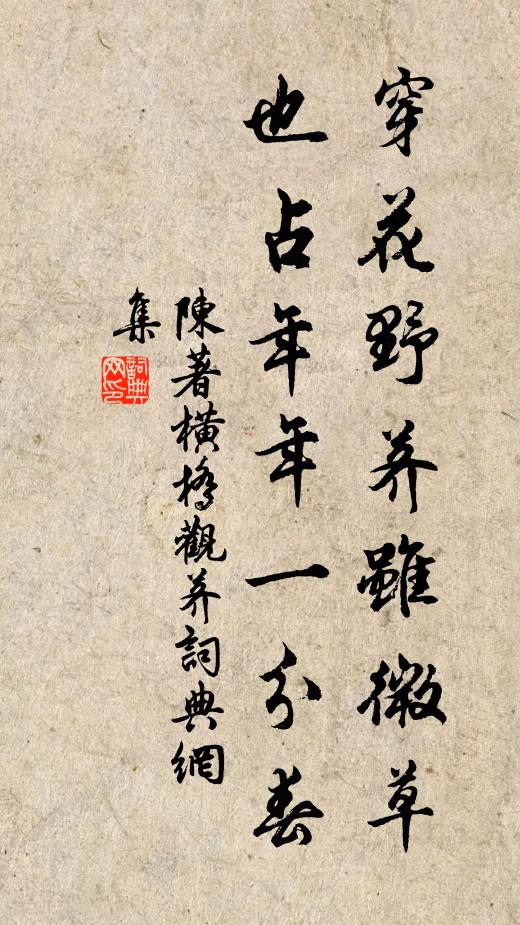 穿花野荠雖微草
也占年年一分春
陳著橫橋觀荠詞典網
集
詞典
网印